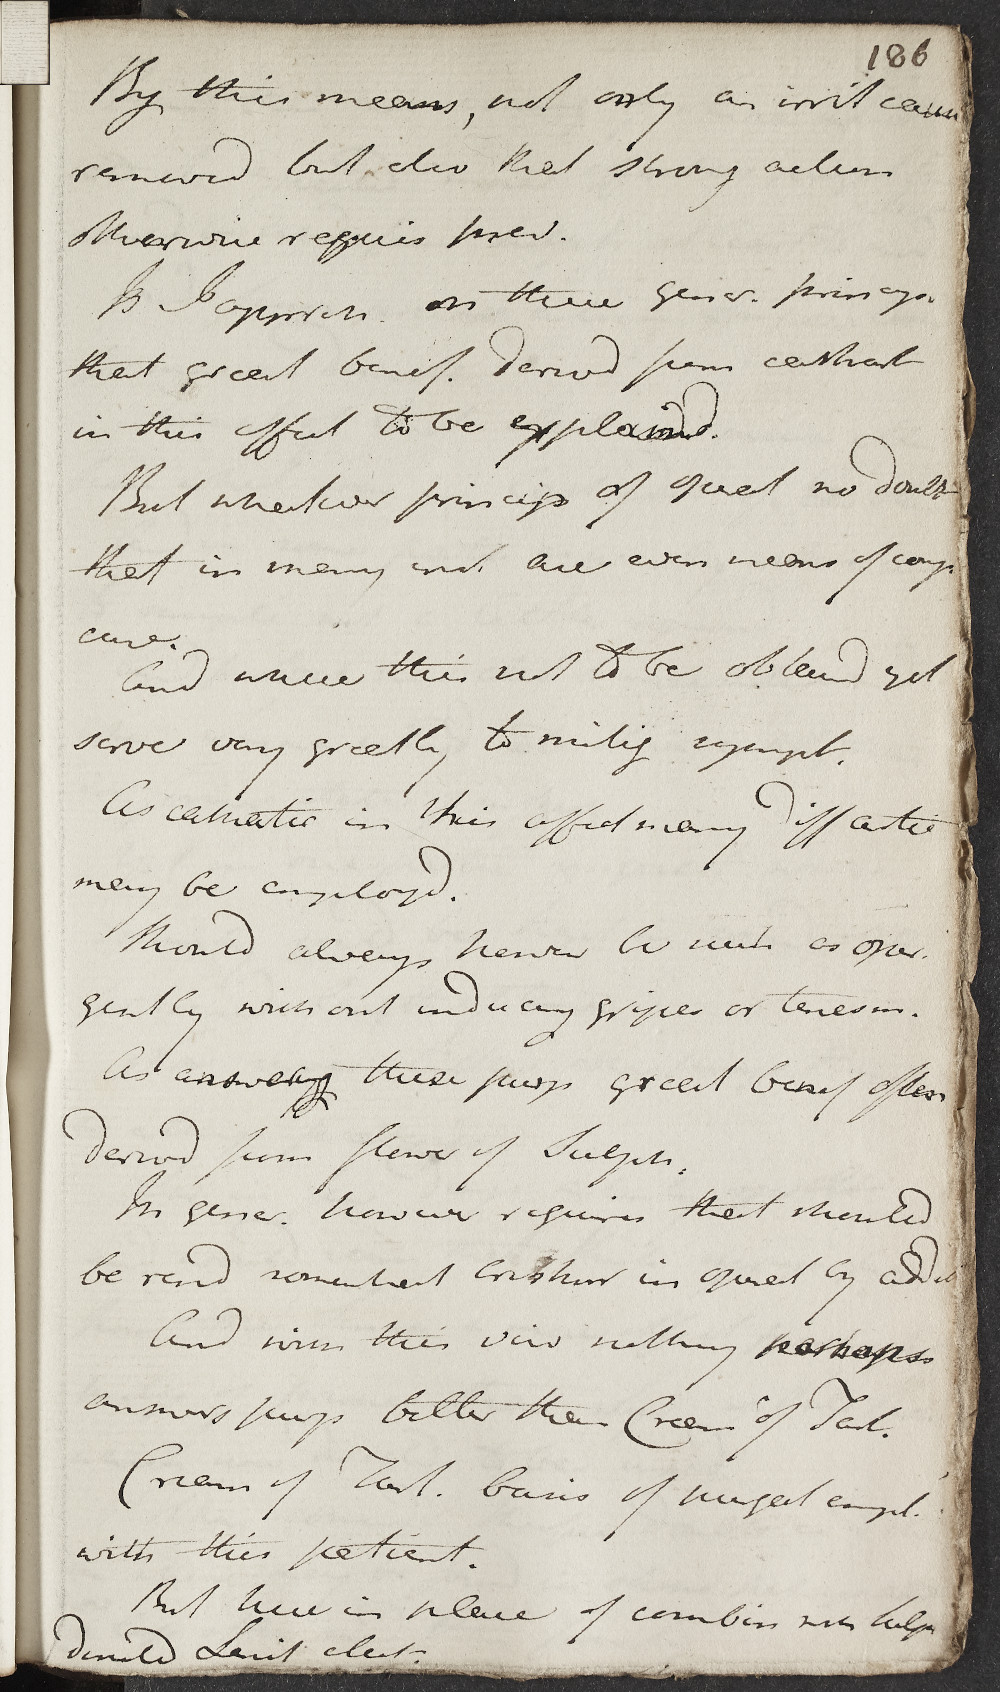 186
By this means, not only an irrit cause
removed but also that strong action
otherwise requis prev.
Is I appreh. on these gener. princip.
that great benef. derived from cathart
in this affect to be explained.
But whatever princip of operat no doubt
that in many inst. are even means of comp.
cure.
And where this not to be obtaind yet
serve very greatly to mitig sympt.
As cathartic in this affect many diff artic
may be employd.
Should always however be such as oper.
gently without inducing gripes or tenesm.
As answering these purp great benef often
derived from flower of Sulph.
In gener. however requires that should
be rend somewhat brisker in operat by addit
And with this view nothing perhaps
answers purp better than Cream of Tart.
Cream of Tart. basis of purgat empl.
with this patient.
But here in place of combin with Sulph
Lenit elect.